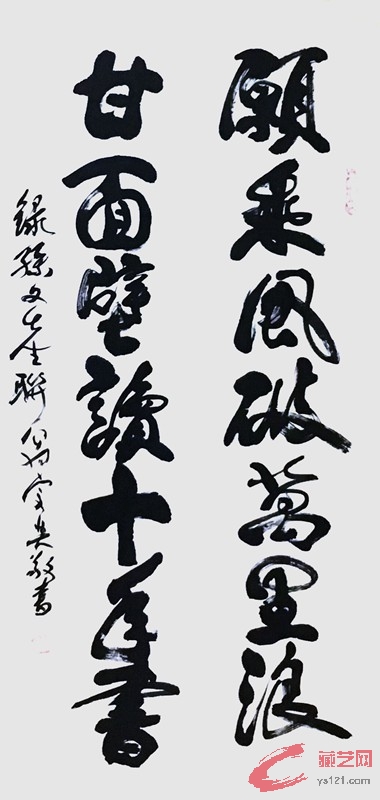 願乘風破萬里浪
甘面壁讀十年書
錄孫文先生聯
敬書
藏艺网
ys121.com